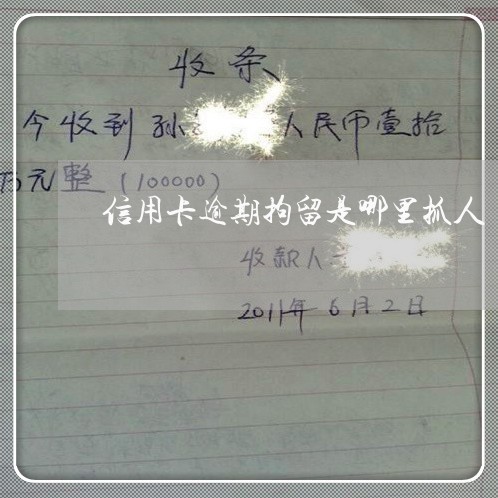 收条
今收到孙 人民币壹拾
万元整(100000)
信用卡逾期拘留是哪里抓人
收款人
2011年6月2日